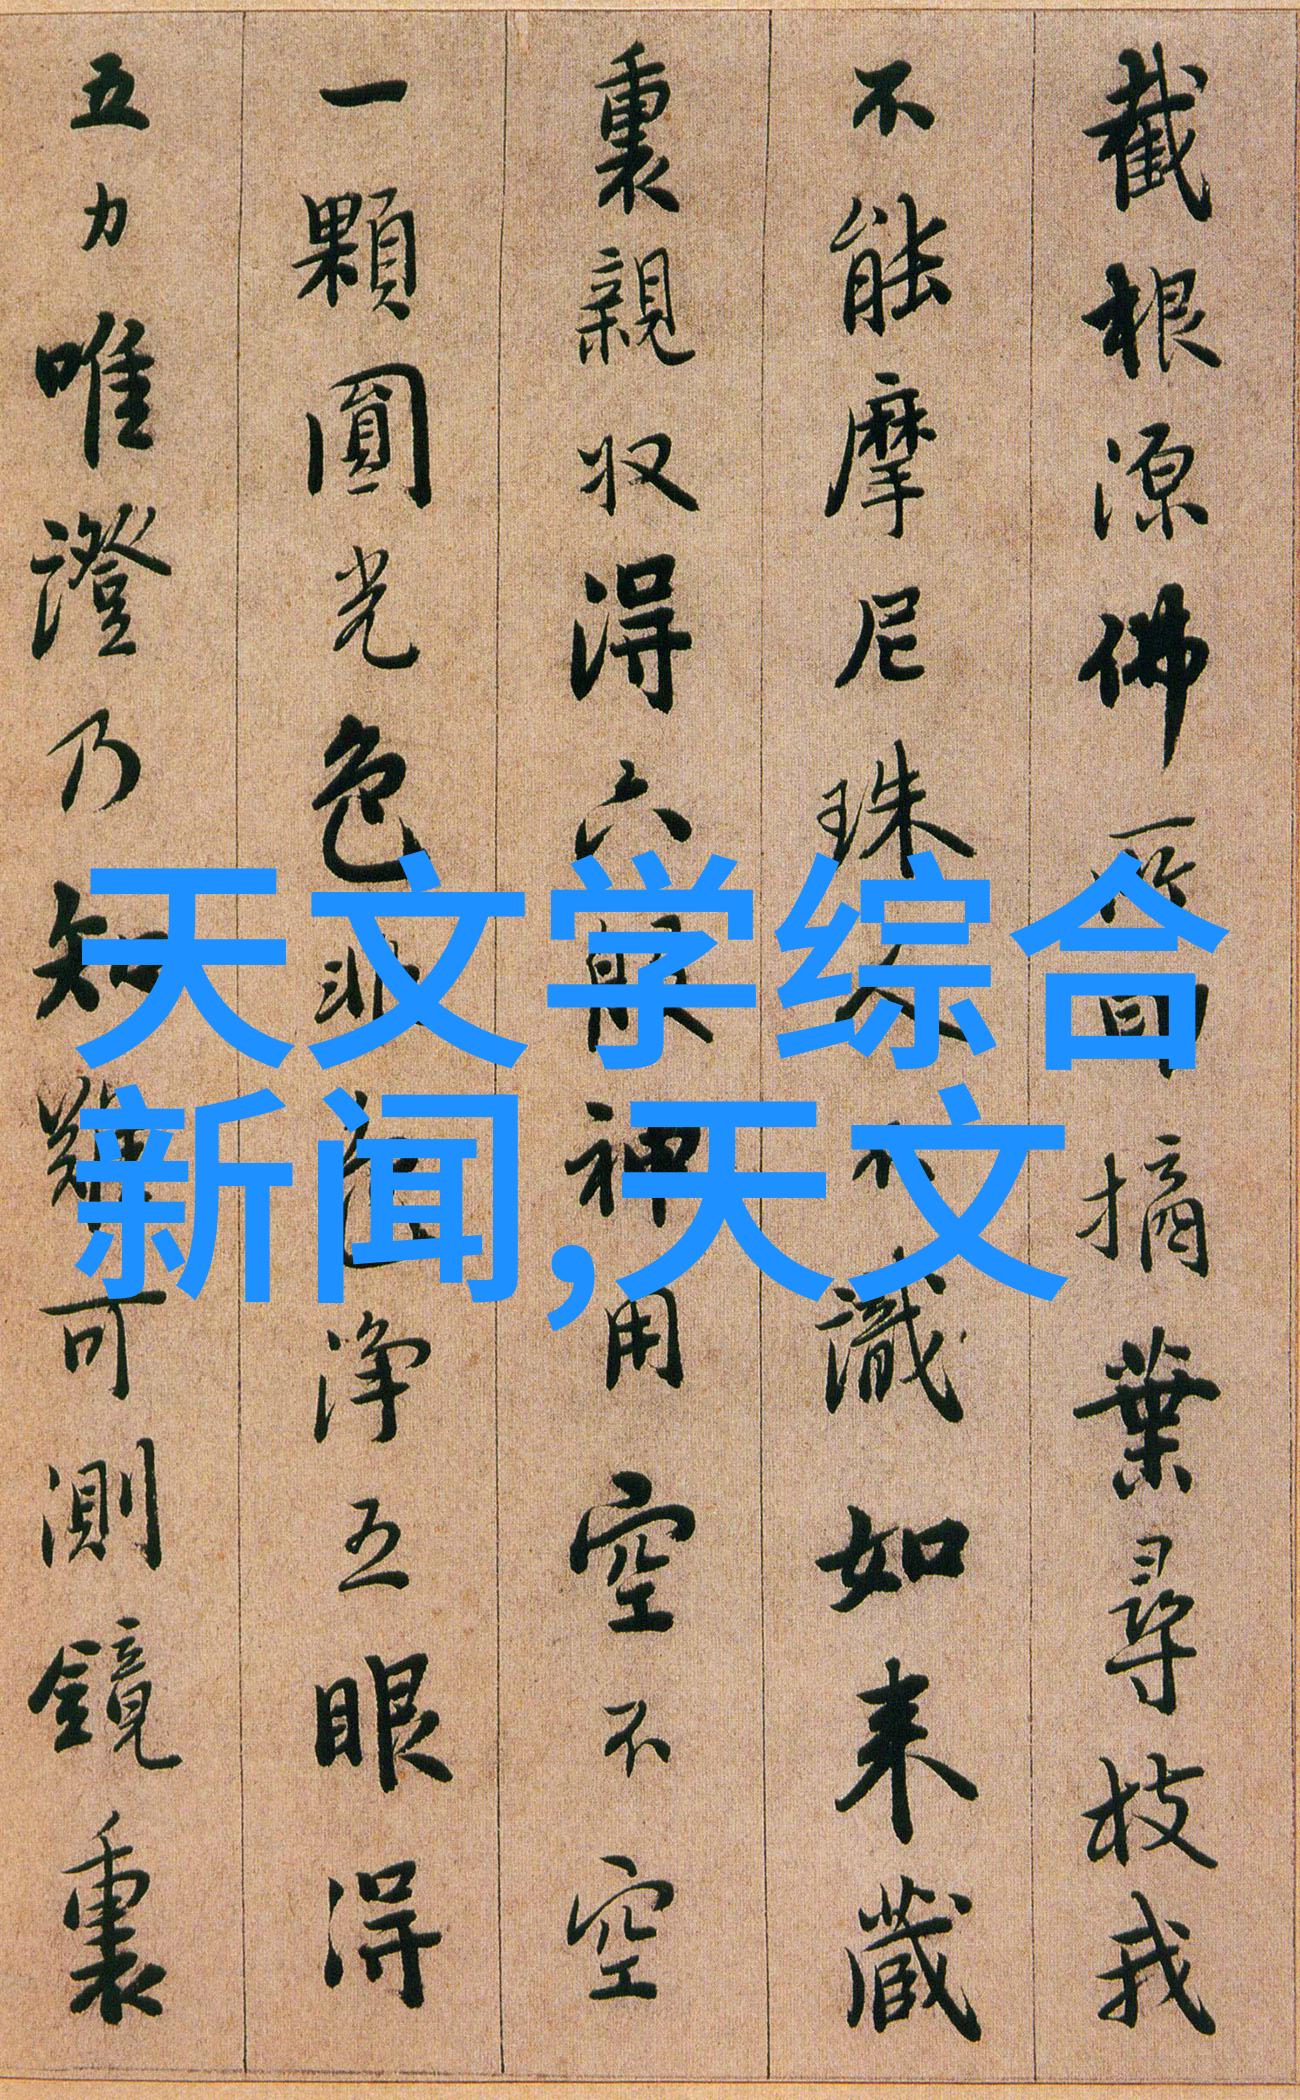 截根源佛所印摘葉尋枝我
不能摩尼珠人不識如来藏
裏親収得六般神用空不空
一顆圓光色非色淨五眼得
五力唯證乃知難可測鏡裏
天文学综合
新闻,天文